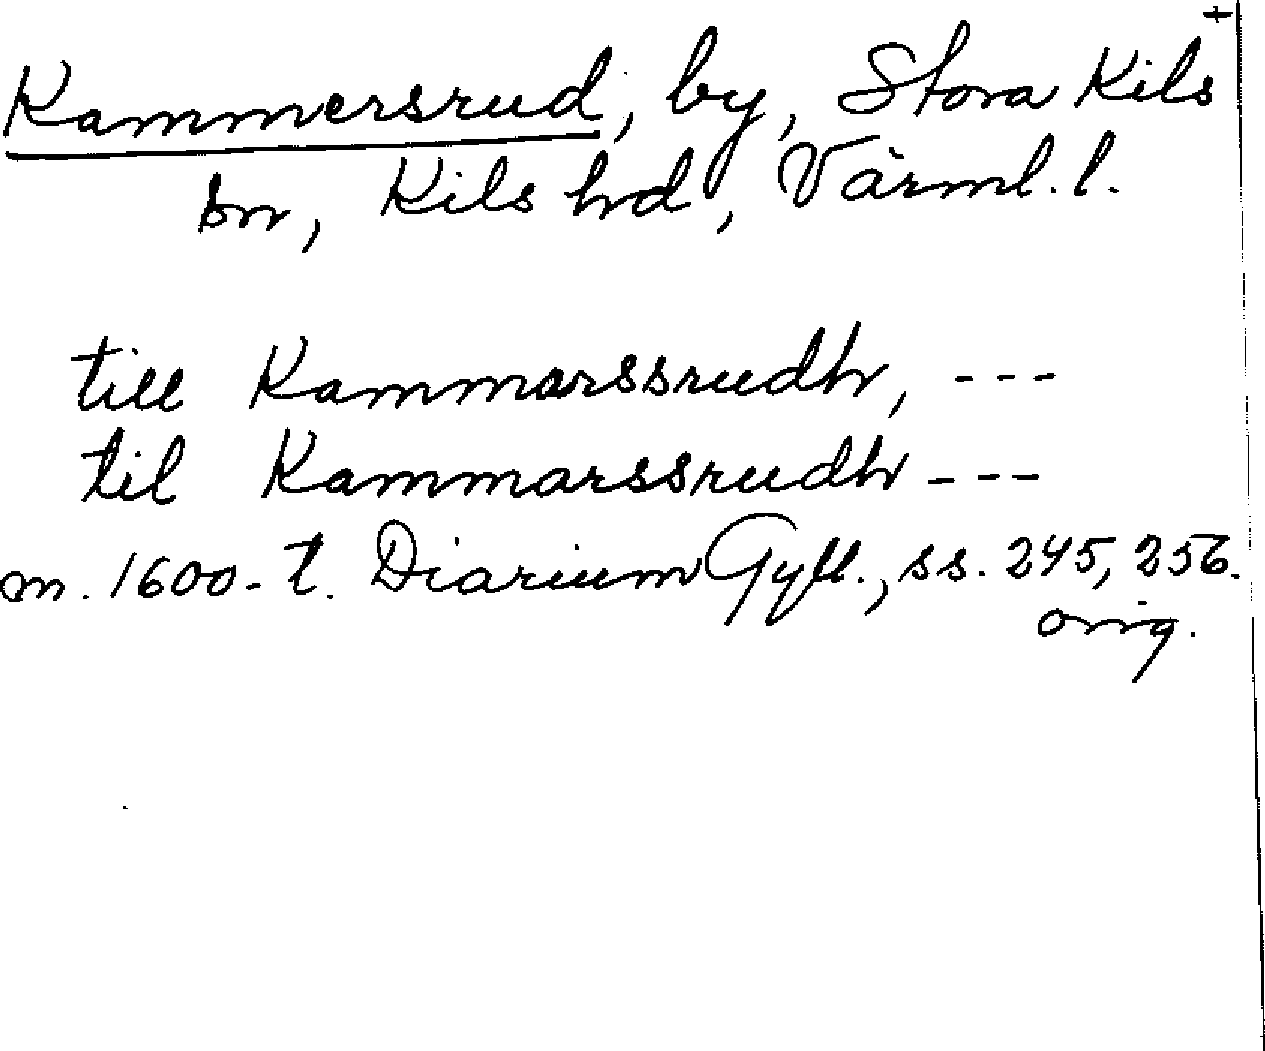 Kammersrud, by, Stora Kils
sn, Kils hd, Värml. l.
till Kammarssrudh, ---
til Kammarssrudh ---
m. 1600-t. Diarium Gyll., ss. 245, 256.
orig.